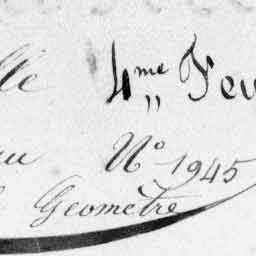 lle 4me Feu
au No 1945
Geometre